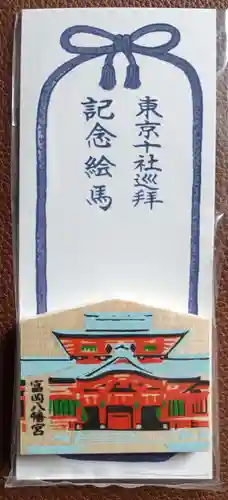 東京十社巡拝
記念絵馬
富岡八幡宮